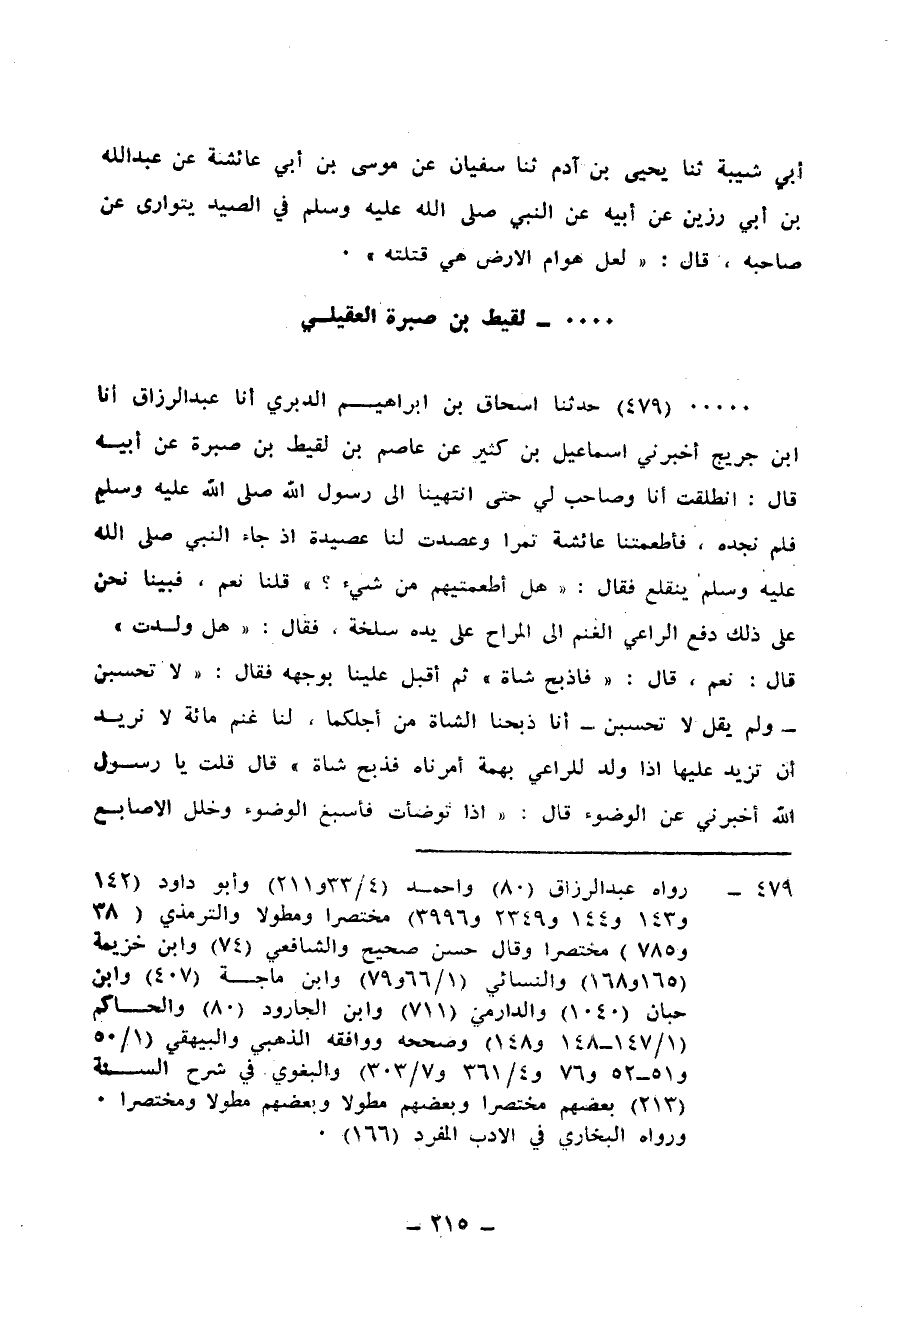 أبي شيبة ثنا يحيى بن آدم ثنا سفيان عن موسى بن أبي عائشة عن عبدالله
بن أبي رزين عن أبيه عن النبي صلى الله عليه وسلم في الصيد يتوارى عن
صاحبه ، قال : « لعل هوام الارض هي قتلته » ٠
٠٠٠٠ ــ لقيط بن صبرة العقيلي
٠٠٠٠٠ (٤٧٩) حدثنا اسحاق بن ابراهيم الدبري أنا عبدالرزاق أنا
ابن جريج أخبرني اسماعيل بن كثير عن عاصم بن لقيط بن صبرة عن أبيه
قال : انطلقت أنا وصاحب لي حتى انتهينا الى رسول الله صلى الله عليه وسلم
فلم نجده ، فأطعمتنا عائشة تمرا وعصدت لنا عصيدة اذ جاء النبي صلى الله
عليه وسلم ينقلع فقال : « هل أطعمتيهم من شيء ؟ » قلنا نعم ، فبينا نحن
على ذلك دفع الراعي الغنم الى المراح على يده سلخة ، فقال : « هل ولدت »
قال : نعم ، قال : « فاذبح شاة » ثم أقبل علينا بوجهه فقال : « لا تحسبن
ــ ولم يقل لا تحسبن ــ أنا ذبحنا الشاة من أجلكما ، لنا غنم مائة لا نريد
أن تزيد عليها اذا ولد للراعي بهمة أمرناه فذبح شاة » قال قلت يا رسول
الله أخبرني عن الوضوء قال : « اذا توضأت فأسبغ الوضوء وخلل الاصابع
٤٧٩ ــ رواه عبدالرزاق (٨٠) واحمد (٣٣/٤و٢١١) وأبو داود (١٤٢
و١٤٣ و١٤٤ و٢٣٤٩ و٣٩٩٦) مختصرا ومطولا والترمذي ( ٣٨
و٧٨٥ ) مختصرا وقال حسن صحيح والشافعي (٧٤) وابن خزيمة
(١٦٥و١٦٨) والنسائي (٦٦/١و٧٩) وابن ماجة (٤٠٧) وابن
حبان (١٠٤٠) والدارمي (٧١١) وابن الجارود (٨٠) والحاكم
(١٤٧/١ــ١٤٨ و١٤٨) وصححه ووافقه الذهبي والبيهقي (٥٠/١
و٥١ــ٥٢ و٧٦ و٣٦١/٤ و٣٠٣/٧) والبغوي في شرح السنة
(٢١٣) بعضهم مختصرا وبعضهم مطولا وبعضهم مطولا ومختصرا ٠
ورواه البخاري في الادب المفرد (١٦٦) ٠
ــ ٢١٥ ــ